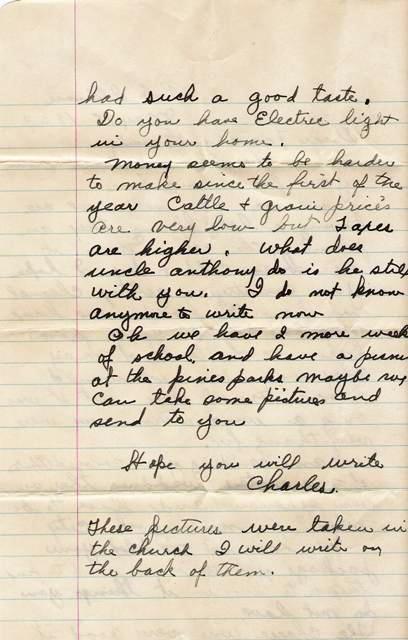 had such a good taste.
Do you have Electric light
in your home.
Money seems to be harder
to make since the first of the
year Cattle & grain prices
are very low but Taxes
are higher. What does
uncle anthony do is he still
with you. I do not know
anymore to write now
Oh we have 1 more week
of school, and have a picnic
at the pines parks maybe we
can take some pictures and
send to you
Hope you will write
Charles.
These pictures were taken in
the church I will write on
the back of them.